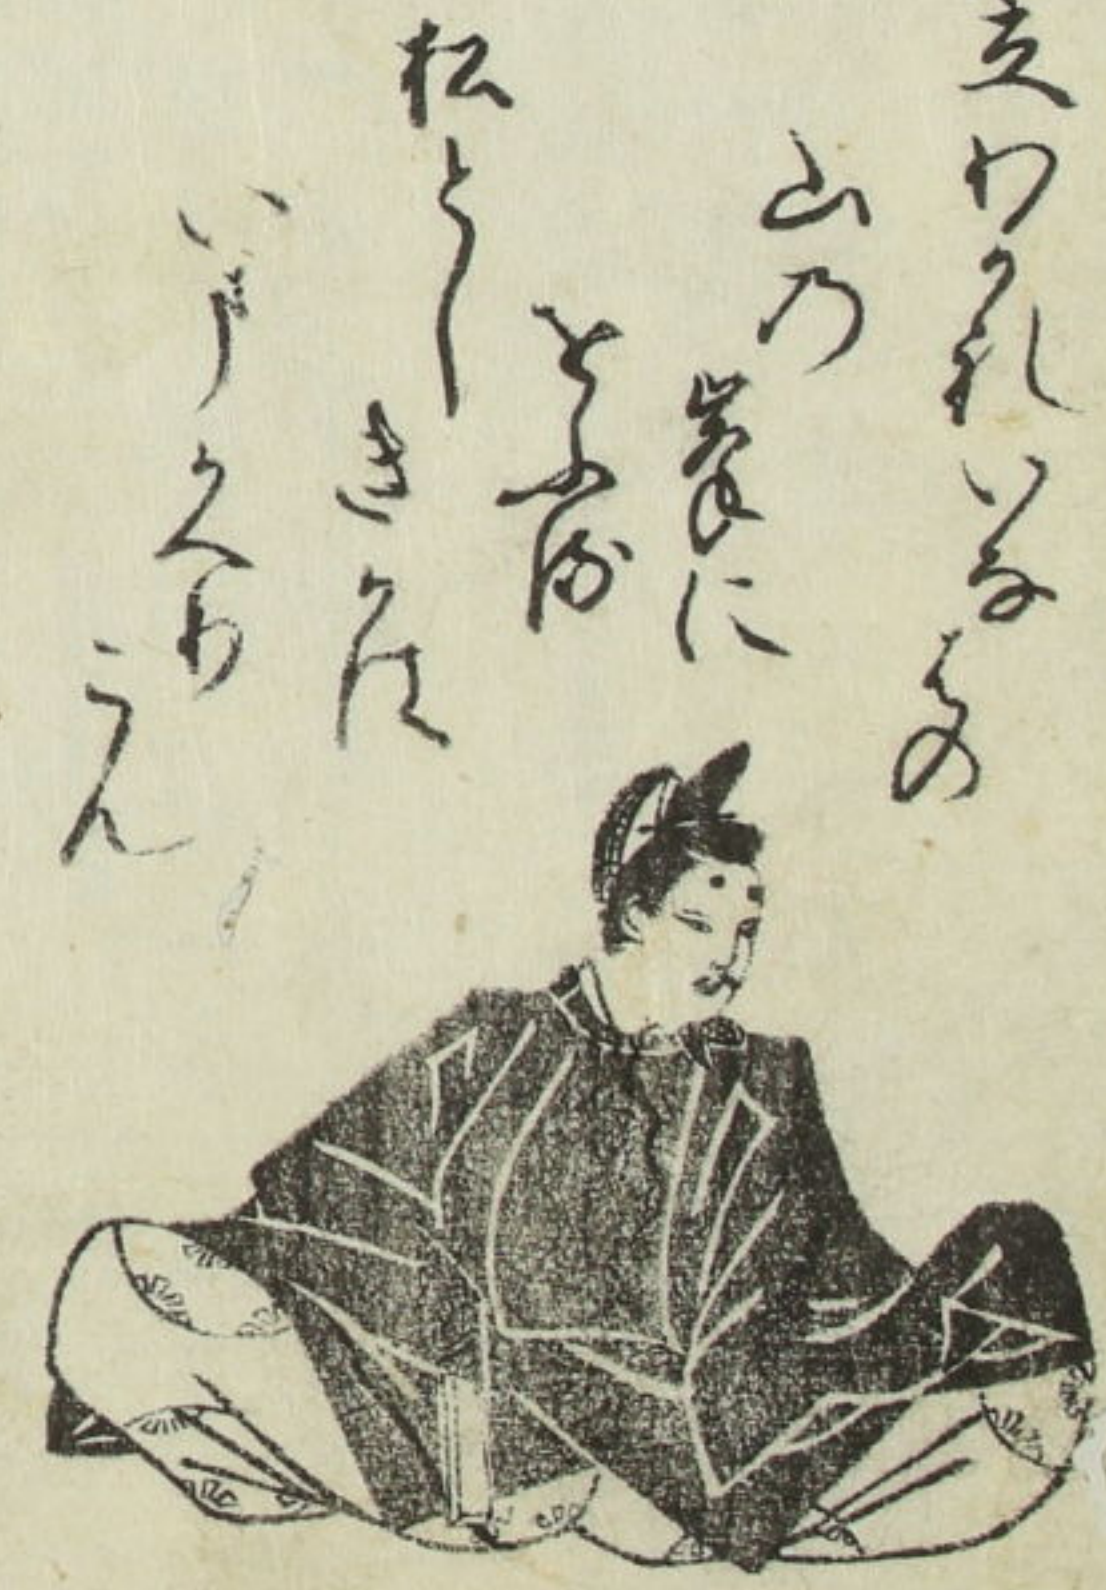 立わかれいなはの
山乃
峯に
をふる
松とし
きかは
いまかへり
こん